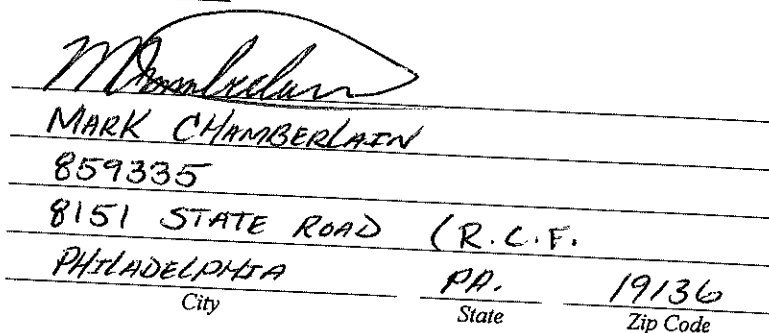 MChamberlain
MARK CHAMBERLAIN
859335
8151 STATE ROAD (R.C.F.
PHILADELPHIA PA. 19136
City State Zip Code